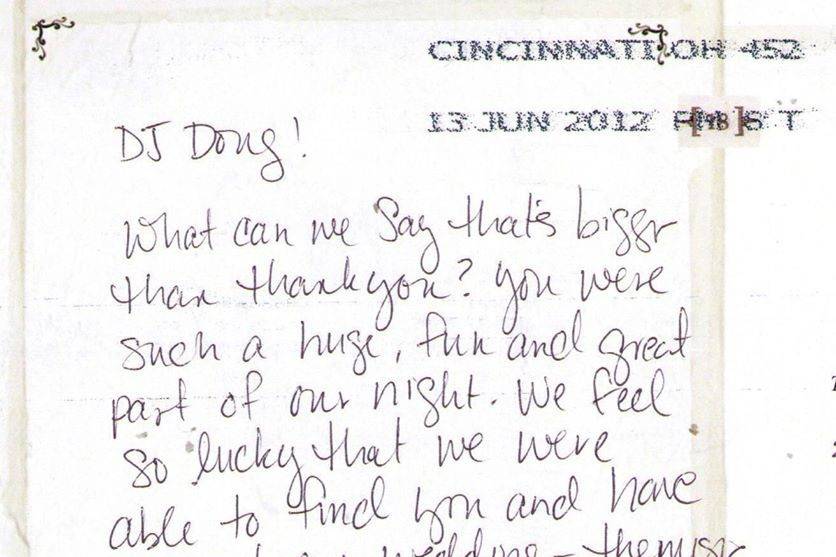 CINCINNATI OH 452
13 JUN 2012 PM 8 T
DJ Doug!
What can we say that's bigger
than thank you? You were
such a huge, fun and great
part of our night. We feel
so lucky that we were
able to find you and have